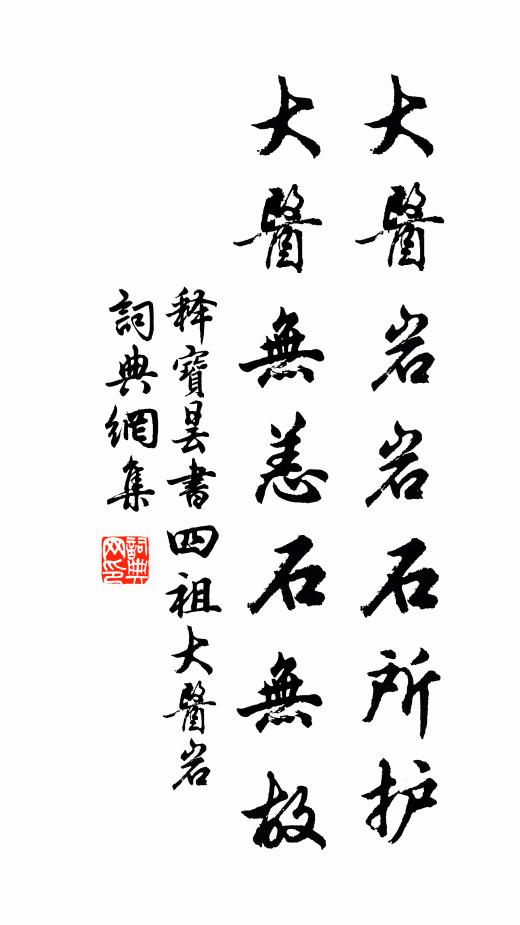 大醫岩岩石所护
大醫無恙石無故
释寶曇書四祖大醫岩
詞典網集
詞典网印